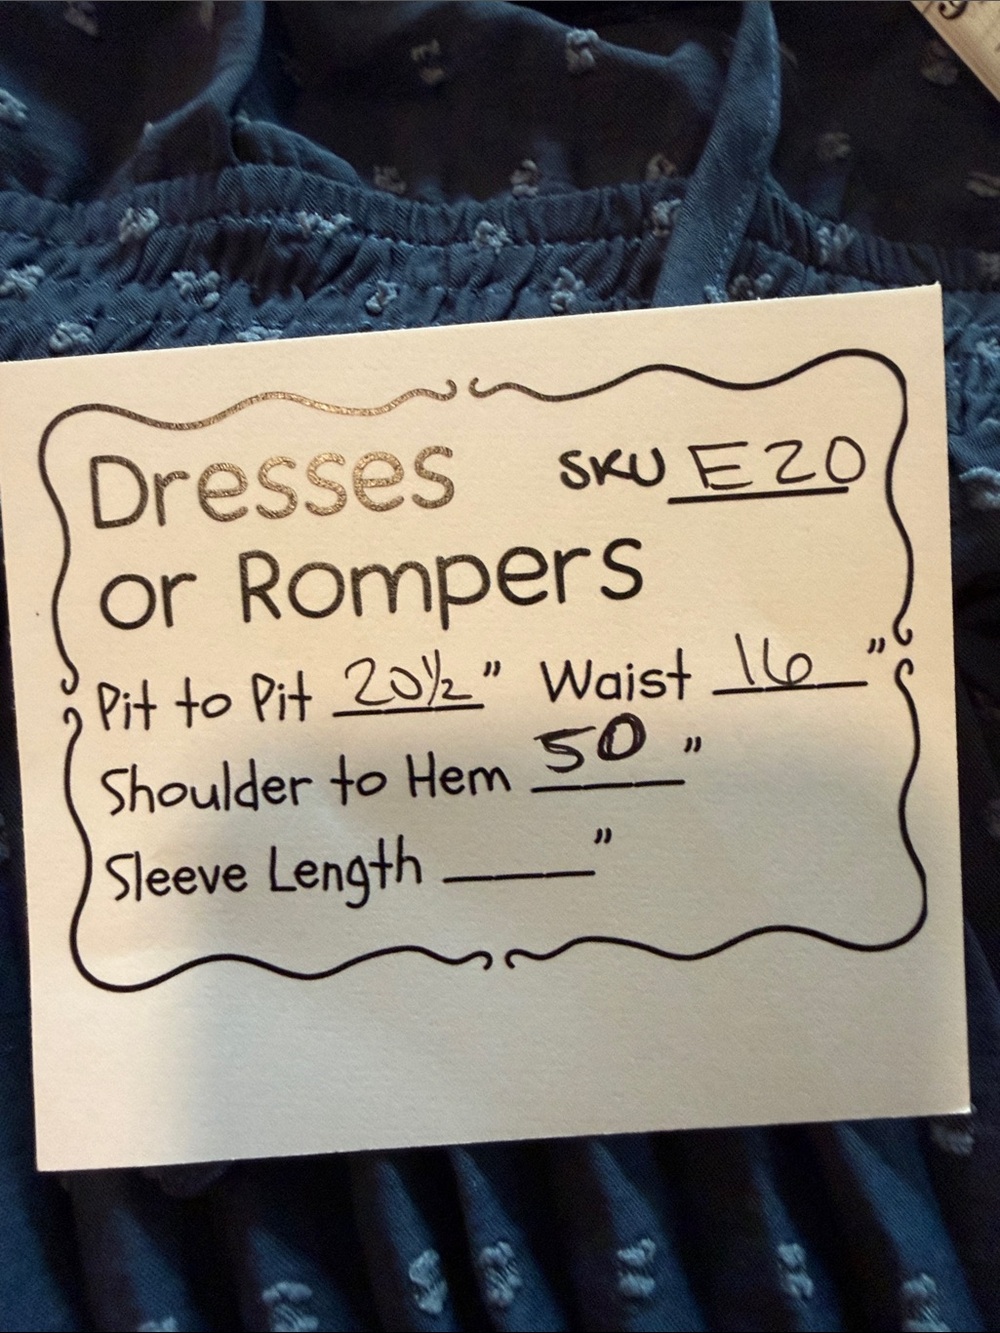 Dresses SKU E20
or Rompers
Pit to Pit 20½" Waist 16"
Shoulder to Hem 50"
Sleeve Length ____"